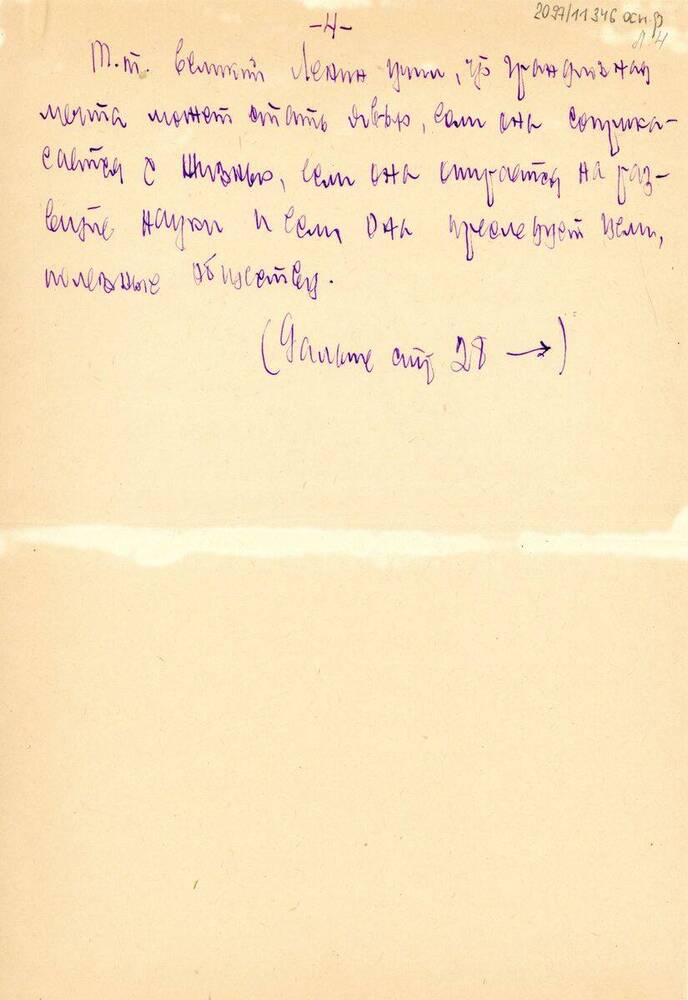 2097/11346 осн.ф
л 4
-4-
Т.т. великий Ленин учил, что грандиозная
мечта может стать явью, если она соприка-
сается с жизнью, если она опирается на раз-
витие науки и если она преследует цели,
полезные обществу.
(Дальше стр 28 →)